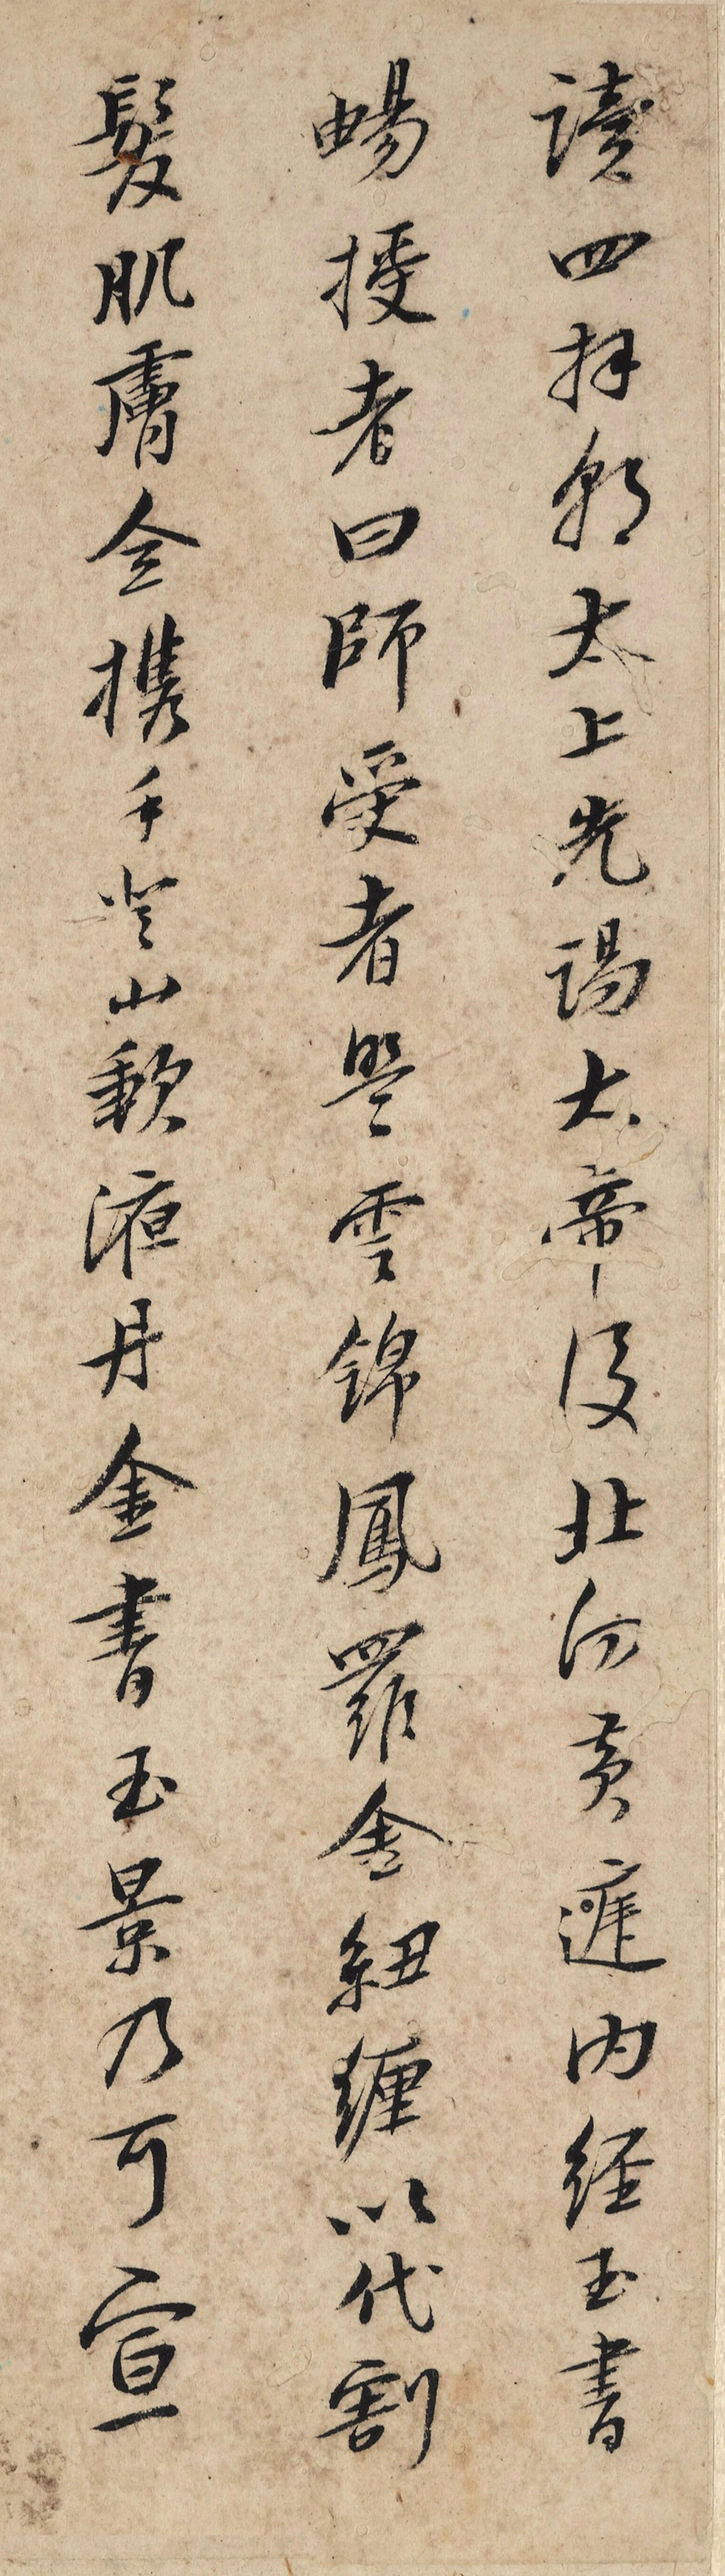 讀四拜朝太上先謁太帝後北向黄庭内經玉書
暢授者曰師受者盟雲錦鳳羅金紐纏以代割
髮肌膚全携手登山歃液丹金書玉景乃可宣